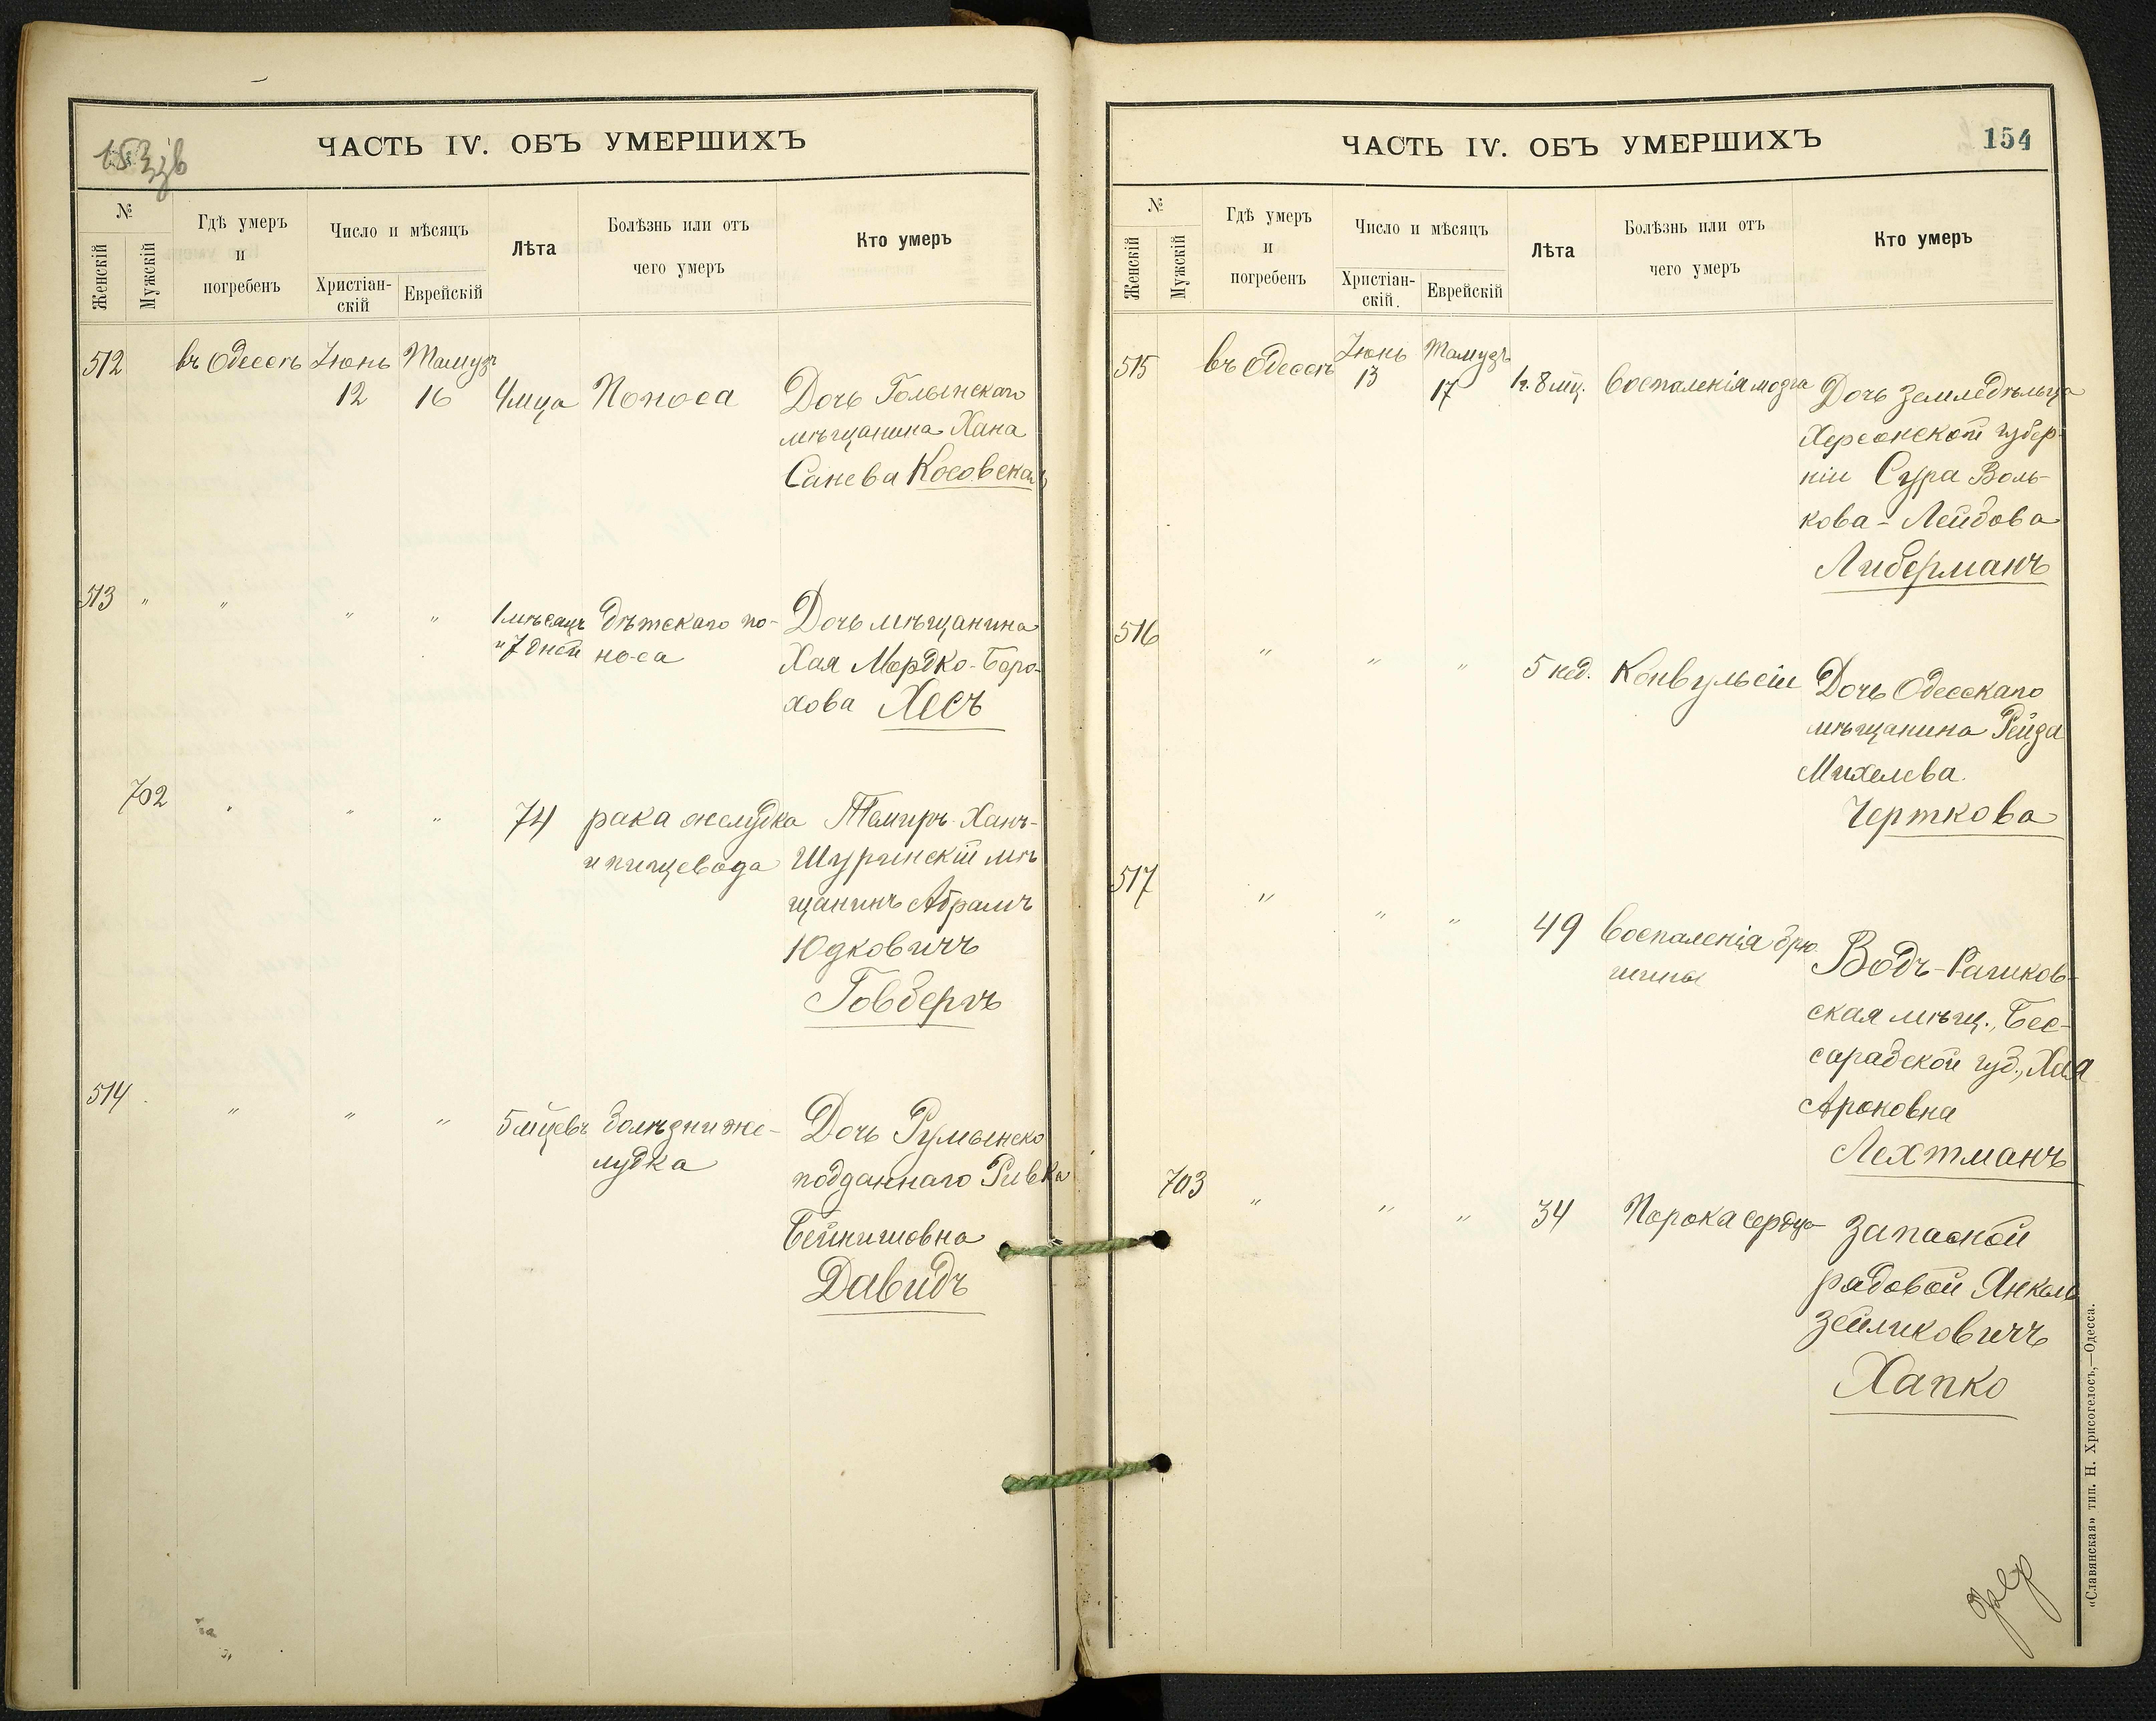 153 зв
ЧАСТЬ IV. ОБЪ УМЕРШИХЪ
№
Женскій
Мужскій
Гдѣ умеръ
и
погребенъ
Число и мѣсяцъ
Христіан-
скій
Еврейскій
Лѣта
Болѣзнь или отъ
чего умеръ
Кто умеръ
512 въ Одессѣ Іюнь Тамузъ
12 16 4 мца Поноса Дочь Голынскаго
мѣщанина Хана
Санева Косовская
513 " " " "
1 мѣсяцъ дѣтскаго по- Дочь мѣщанина
и 7 дней но-са Хая Мордко-Боро-
хова Хесъ
702 " " "
74 рака желудка Темиръ-Ханъ-
и пищевода Шуринскій мѣ
щанинъ Абрамъ
Юдковичъ
Говбергъ
514 " " "
5 мцевъ болѣзни же- Дочь Румынско
лудка подданнаго Ривка
Бейнишовна
Давидъ
ЧАСТЬ IV. ОБЪ УМЕРШИХЪ
154
№
Женскій
Мужскій
Гдѣ умеръ
и
погребенъ
Число и мѣсяцъ
Христіан-
скій.
Еврейскій
Лѣта
Болѣзнь или отъ
чего умеръ
Кто умеръ
515 въ Одессѣ Іюнь Тамузъ
13 17 1 г. 8 мц. Воспаленія мозга Дочь земледѣльца
Херсонской губер-
ніи Сура Воль-
кова-Лейбова
Либерманъ
516
" " " 5 нед. Конвульсіи Дочь Одесскаго
мѣщанина Рейза
Михелева
Черткова
517
" " " 49 Воспаленія брю
шины Водъ-Рашков-
ская мѣщ., Бес-
сарабской губ., Хая
Ароновна
Лехтманъ
703 " " " 34 Порока сердца Запасной
рядовой Янкель
Зейликовичъ
Хапко
«Славянская» тип. Н. Хрисогелосъ,—Одесса.